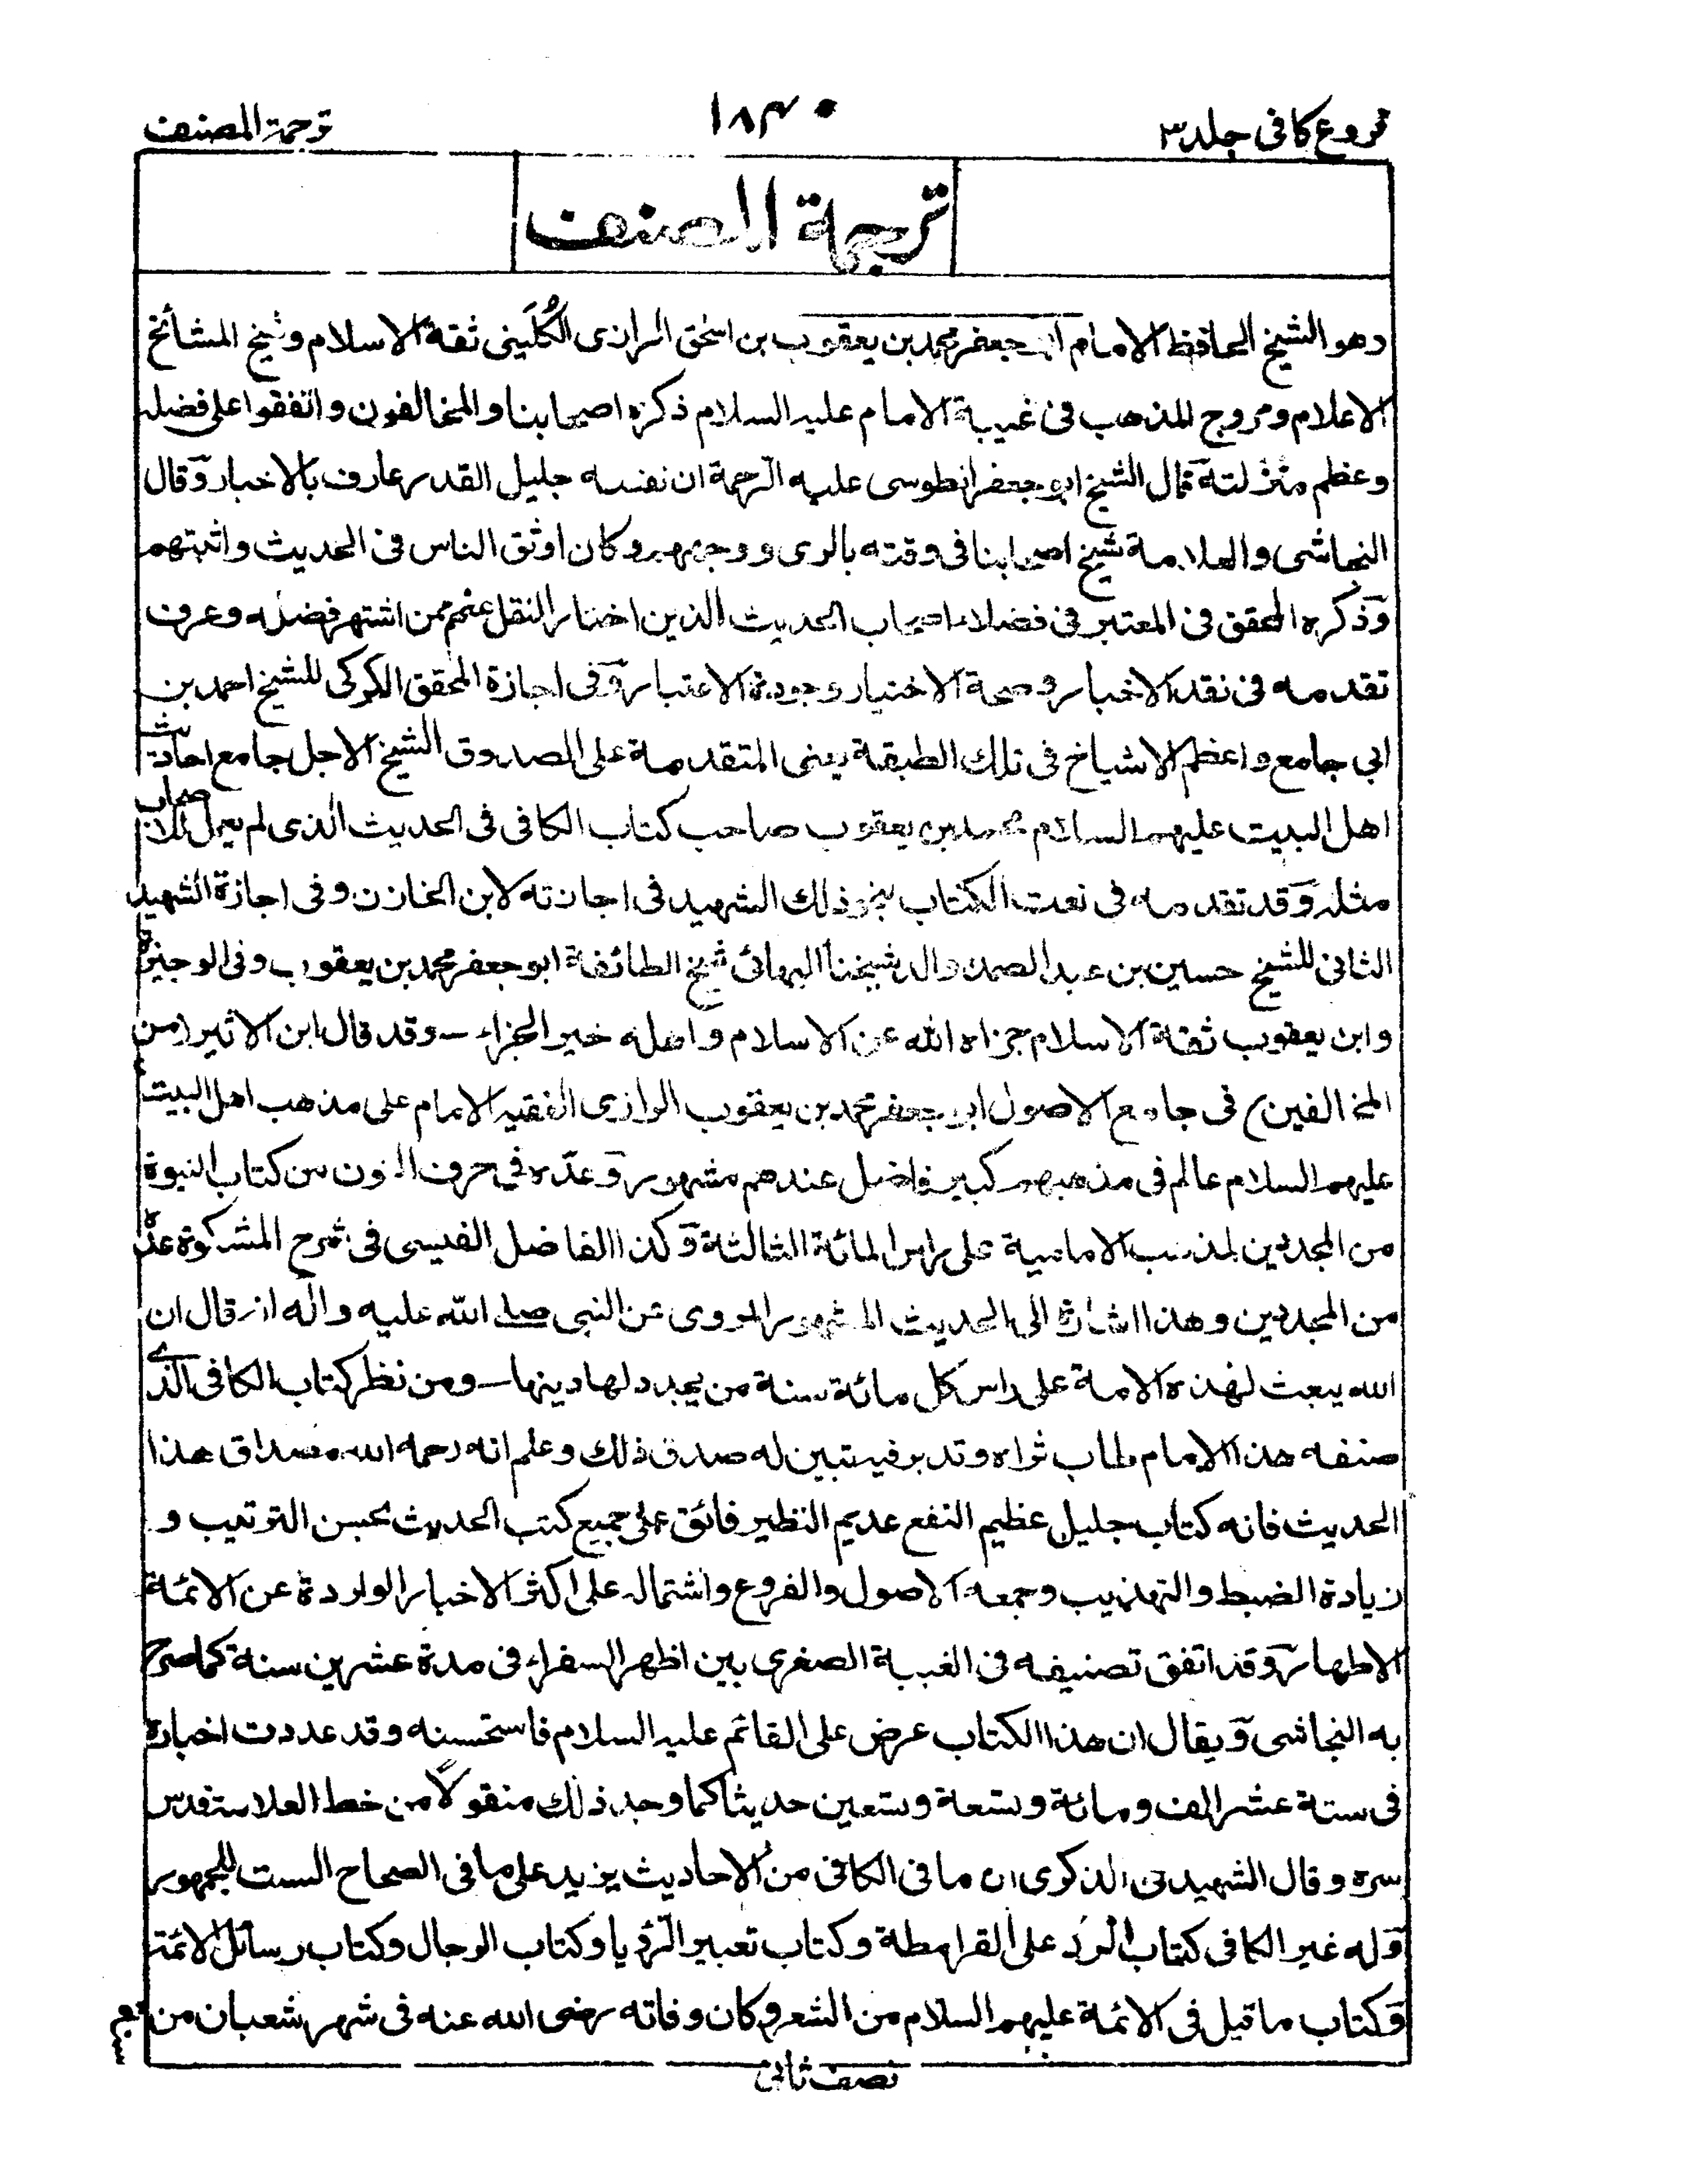 فروع كافى جلد ٣
١٨٣٠
ترجمة المصنف
ترجمة المصنف
وهو الشيخ الحافظ الامام ابو جعفر محمد بن يعقوب بن اسحٰق الرازى الكُلَينى ثقة الاسلام وشيخ المشائخ
الاعلام ومروج المذهب فى غيبة الامام عليه السلام ذكره اصحابنا والمخالفون واتفقوا على فضله
وعظم منزلته قال الشيخ ابو جعفر الطوسى عليه الرحمة ان نفسه جليل القدر عارف بالاخبار وقال
النجاشى والعلامة شيخ اصحابنا فى وقته بالرى ووجههم وكان اوثق الناس فى الحديث واثبتهم
وذكره المحقق فى المعتبر فى فضلاء اصحاب الحديث الذين اختار النقل عنهم ممن اشتهر فضله وعرف
تقدمه فى نقد الاخبار وصحة الاختيار وجودة الاعتبار وفى اجازة المحقق الكركى للشيخ احمد بن
ابى جامع واعظم الاشياخ فى تلك الطبقة يعنى المتقدمة على الصدوق الشيخ الاجل جامع احاديث
اهل البيت عليهم السلام محمد بن يعقوب صاحب كتاب الكافى فى الحديث الذى لم يعمل للاصحاب
مثله وقد تقدمه فى نعت الكتاب بنحو ذلك الشهيد فى اجازته لابن الخازن وفى اجازة الشهيد
الثانى للشيخ حسين بن عبد الصمد والد شيخنا البهائى شيخ الطائفة ابو جعفر محمد بن يعقوب وفى الوجيزة
وابن يعقوب ثقة الاسلام جزاه الله عن الاسلام واهله خير الجزاء - وقد قال ابن الاثير (من
المخالفين) فى جامع الاصول ابو جعفر محمد بن يعقوب الرازى الفقيه الامام على مذهب اهل البيت
عليهم السلام عالم فى مذهبهم كبير فاضل عندهم مشهور وعدّه فى حرف النون من كتاب النبوة
من المجددين لمذهب الامامية على راس المائة الثالثة وكذا الفاضل الفيسى فى شرح المشكوة عدّه
من المجددين وهذا اشارة الى الحديث المشهور المروى عن النبى صلى الله عليه واٰله انه قال ان
الله يبعث لهذه الامة على راس كل مائة سنة من يجدد لها دينها - ومن نظر كتاب الكافى الذى
صنفه هذا الامام طاب ثراه وتدبر فيه تبين له صدق ذلك وعلم انه رحمه الله مصداق هذا
الحديث فانه كتاب جليل عظيم النفع عديم النظير فائق على جميع كتب الحديث بحسن الترتيب و
زيادة الضبط والتهذيب وجمعه الاصول والفروع واشتماله على اكثر الاخبار الواردة عن الائمة
الاطهار وقد اتفق تصنيفه فى الغيبة الصغرى بين اظهر السفراء فى مدة عشرين سنة كما صرح
به النجاشى ويقال ان هذا الكتاب عرض على القائم عليه السلام فاستحسنه وقد عددت اخباره
فى ستة عشر الف ومائة وتسعة وتسعين حديثا كما وجد ذلك منقولًا من خط العلامة قدس
سره وقال الشهيد فى الذكرى ان ما فى الكافى من الاحاديث يزيد على ما فى الصحاح الست للجمهور
وله غير الكافى كتاب الرد على القرامطة وكتاب تعبير الرؤيا وكتاب الرجال وكتاب رسائل الائمة
وكتاب ما قيل فى الائمة عليهم السلام من الشعر وكان وفاته رضى الله عنه فى شهر شعبان من
نصف ثانى